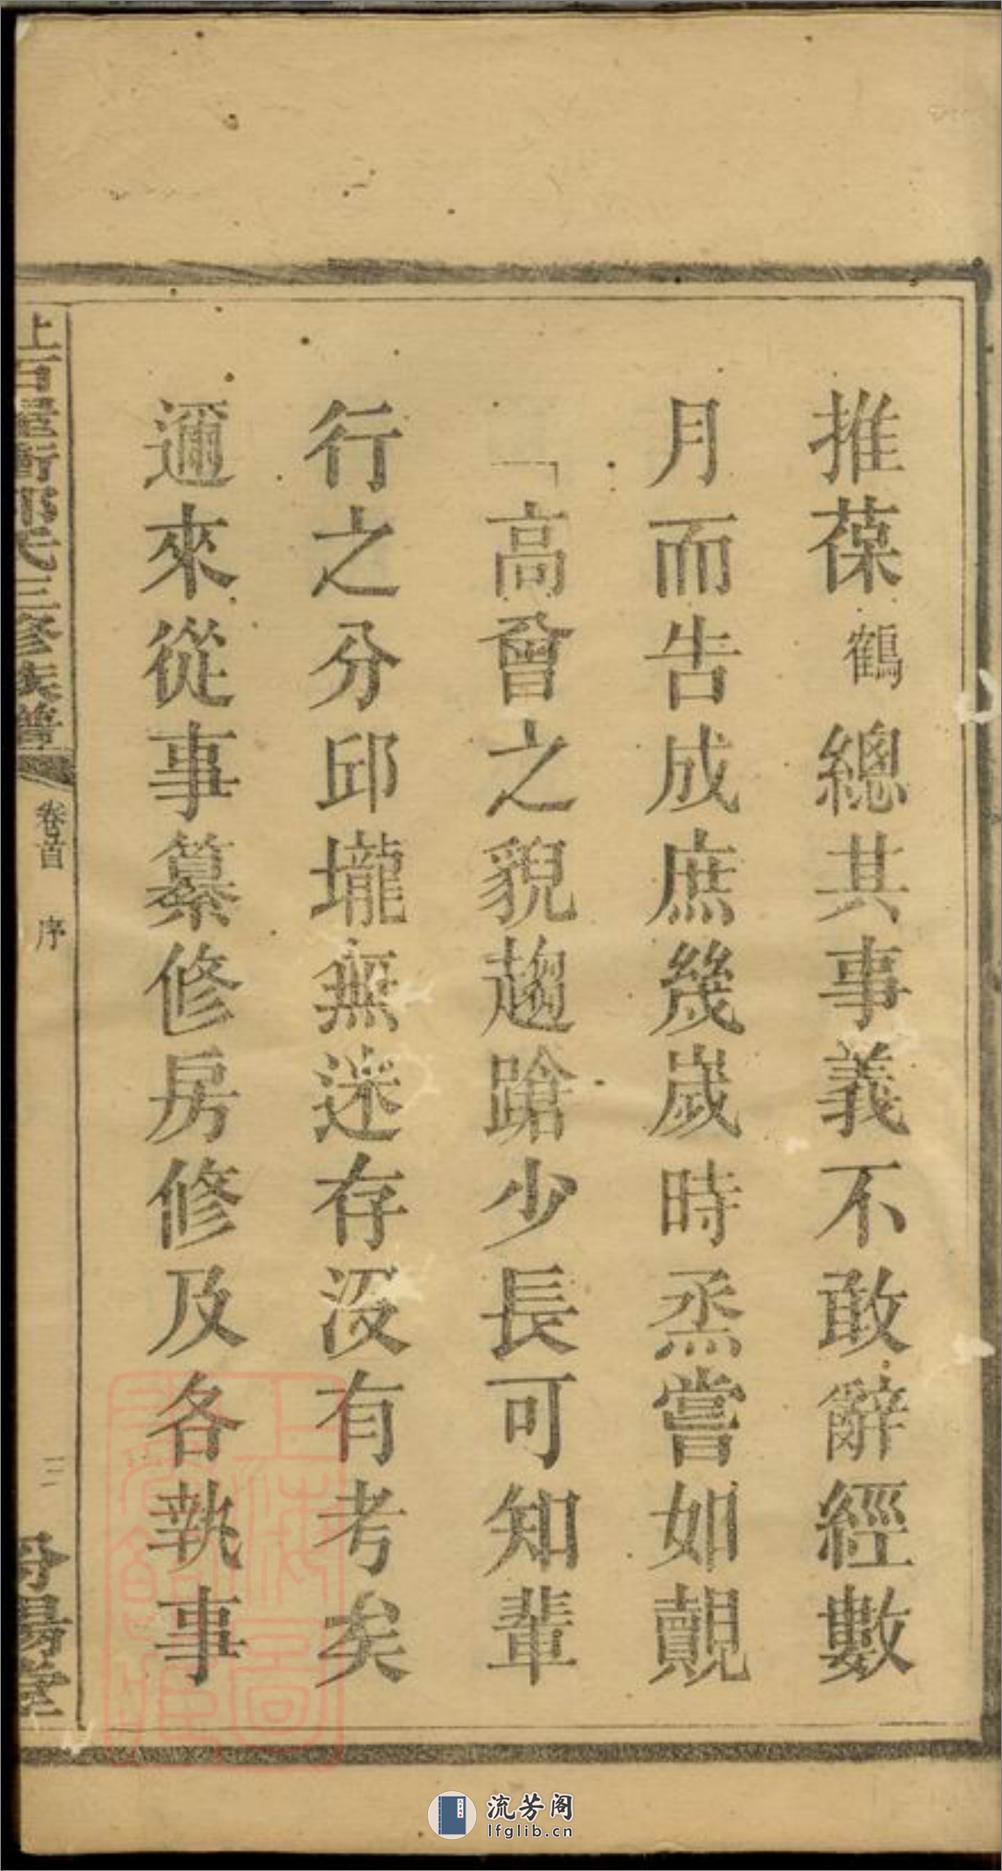 推葆鶴總其事義不敢辭經數
月而告成庶幾歲時烝嘗如覿
高曾之貌趨蹌少長可知輩
行之分邱壠無迷存沒有考矣
邇來從事纂修房修及各執事
氏三修族譜
卷首 序
三
上海圖書館藏
流芳阁
lfglib.cn